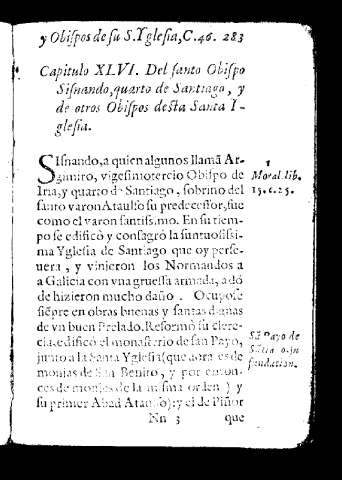 y Obispos de su S. Yglesia, C. 46. 283
Capitulo XLVI. Del santo Obispo
Sisnando, quarto de Santiago, y
de otros Obispos desta Santa I-
glesia.
SIsnando, a quien algunos llamā Ar-
gimiro, vigesimotercio Obispo de
Iria, y quarto de Santiago, sobrino del
santo varon Ataulfo su predecessor, fue
como el varon santissimo. En su tiem-
po se edificò y consagrò la suntuosissi-
ma Yglesia de Santiago que oy perse-
uera, y vinieron los Normandos a
a Galicia con vna gruessa armada, a dō
de hizieron mucho daño. Ocupose
siēpre en obras buenas y santas dignas
de vn buen Prelado. Reformò su clere-
cia, edificò el monasterio de san Payo,
junto a la Santa Yglesia (que aora es de
monjas de San Benito, y por enton-
ces de monjes de la misma orden) y
su primer Abad Ataulfo): y el de Piñor
Nn 3 que
1
Moral. lib.
15. c. 25.
Sā Payo de
fundacion.